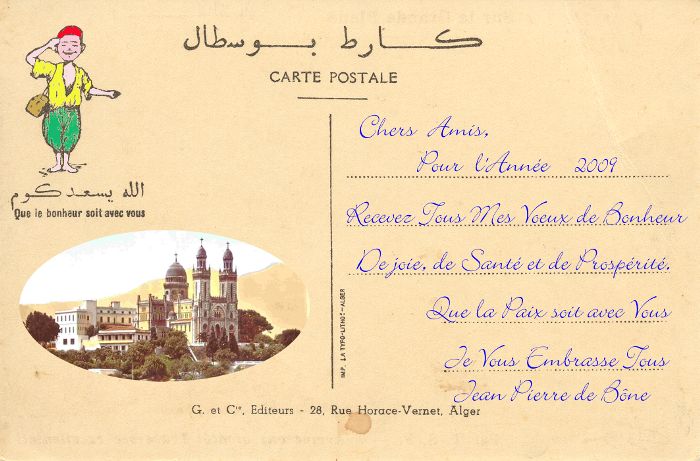 كارط بوسطال
CARTE POSTALE
الله يسعدكوم
Que le bonheur soit avec vous
Chers Amis,
Pour l'Année 2009
Recevez Tous Mes Voeux de Bonheur
De joie, de Santé et de Prospérité,
Que la Paix soit avec Vous
Je Vous Embrasse Tous
Jean Pierre de Bône
IMP. LA TYPO-LITHO - ALGER
G. et Cie, Editeurs - 28, Rue Horace-Vernet, Alger